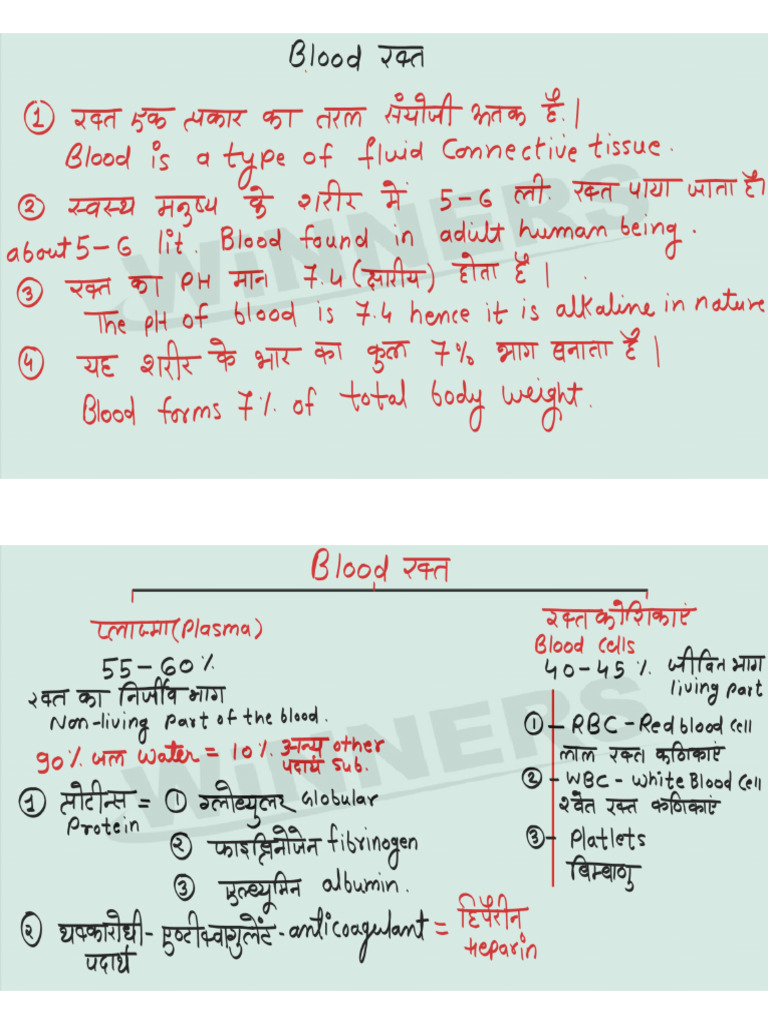 Blood रक्त
① रक्त एक प्रकार का तरल संयोजी ऊतक है।
Blood is a type of fluid Connective tissue.
② स्वस्थ मनुष्य के शरीर में 5-6 ली. रक्त पाया जाता है।
about 5-6 lit. Blood found in adult human being.
③ रक्त का PH मान 7.4 (क्षारीय) होता है।
The pH of blood is 7.4 hence it is alkaline in nature
④ यह शरीर के भार का कुल 7% भाग बनाता है।
Blood forms 7% of total body weight.
WiNNERS
Blood रक्त
प्लाज्मा (Plasma)
55-60%
रक्त का निर्जीव भाग
Non-living part of the blood.
90% जल water = 10% अन्य other
पदार्थ Sub.
① प्रोटीन्स = ① ग्लोब्युलर Globular
Protein
② फाइब्रिनोजेन fibrinogen
③ एल्ब्यूमिन albumin.
② थक्कारोधी - एण्टीक्वागुलेंट - anticoagulant = हिपैरीन
पदार्थ
Heparin
रक्त कोशिकाएं
Blood Cells
40-45% जीवित भाग
living part
① - RBC - Red blood cell
लाल रक्त कणिकाएं
② - WBC - White Blood Cell
श्वेत रक्त कणिकाएं
③ - Platlets
बिम्बाणु
WiNNERS